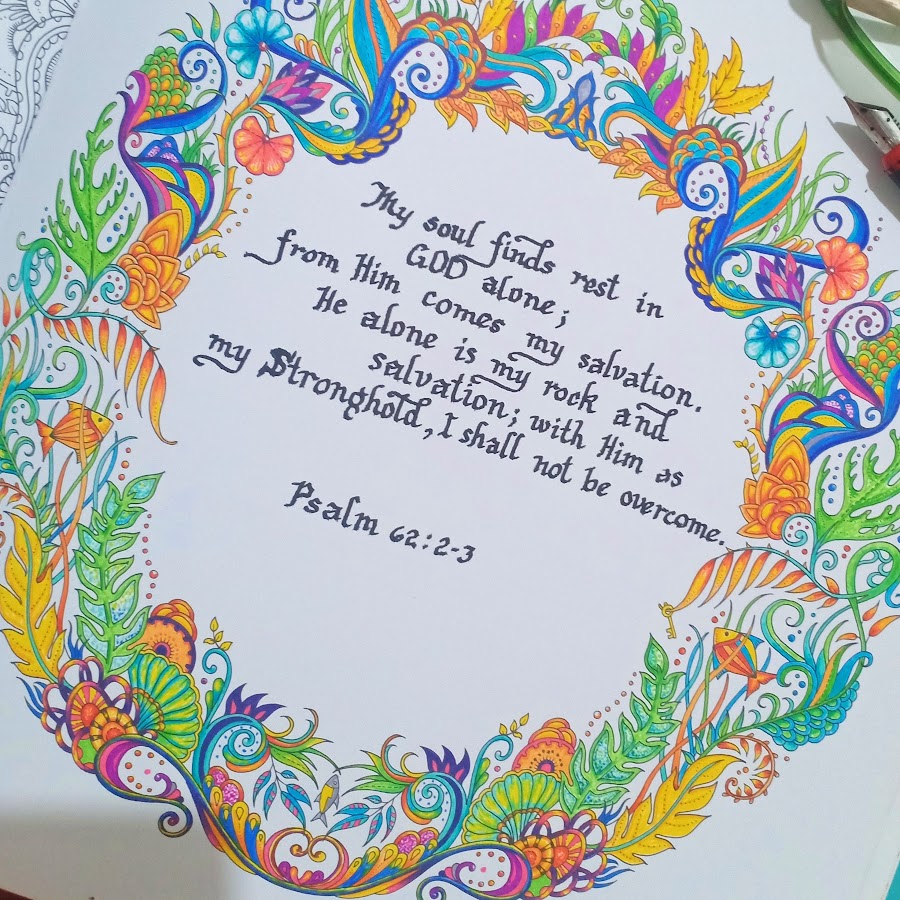 My soul finds rest in
GOD alone;
from Him comes my salvation.
He alone is my rock and
salvation; with Him as
my Stronghold, I shall not be overcome.
Psalm 62:2-3